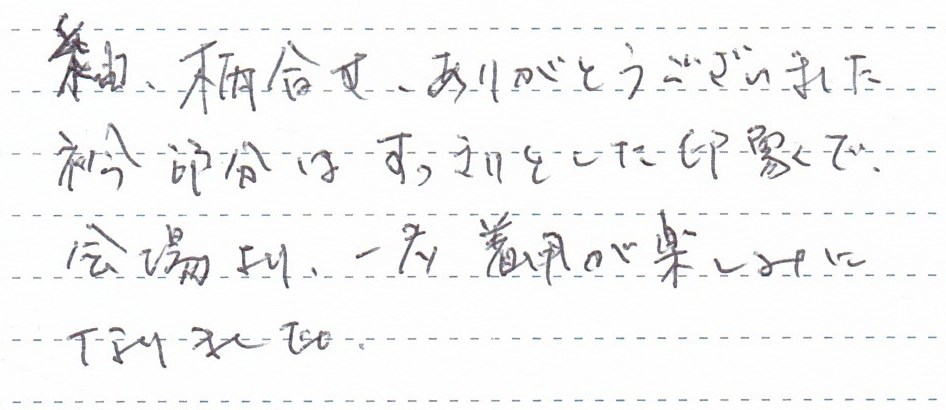 袖、柄合せ、ありがとうございました
衿部分はすっきりとした印象で、
会場より、一層着用が楽しみに
なりました。